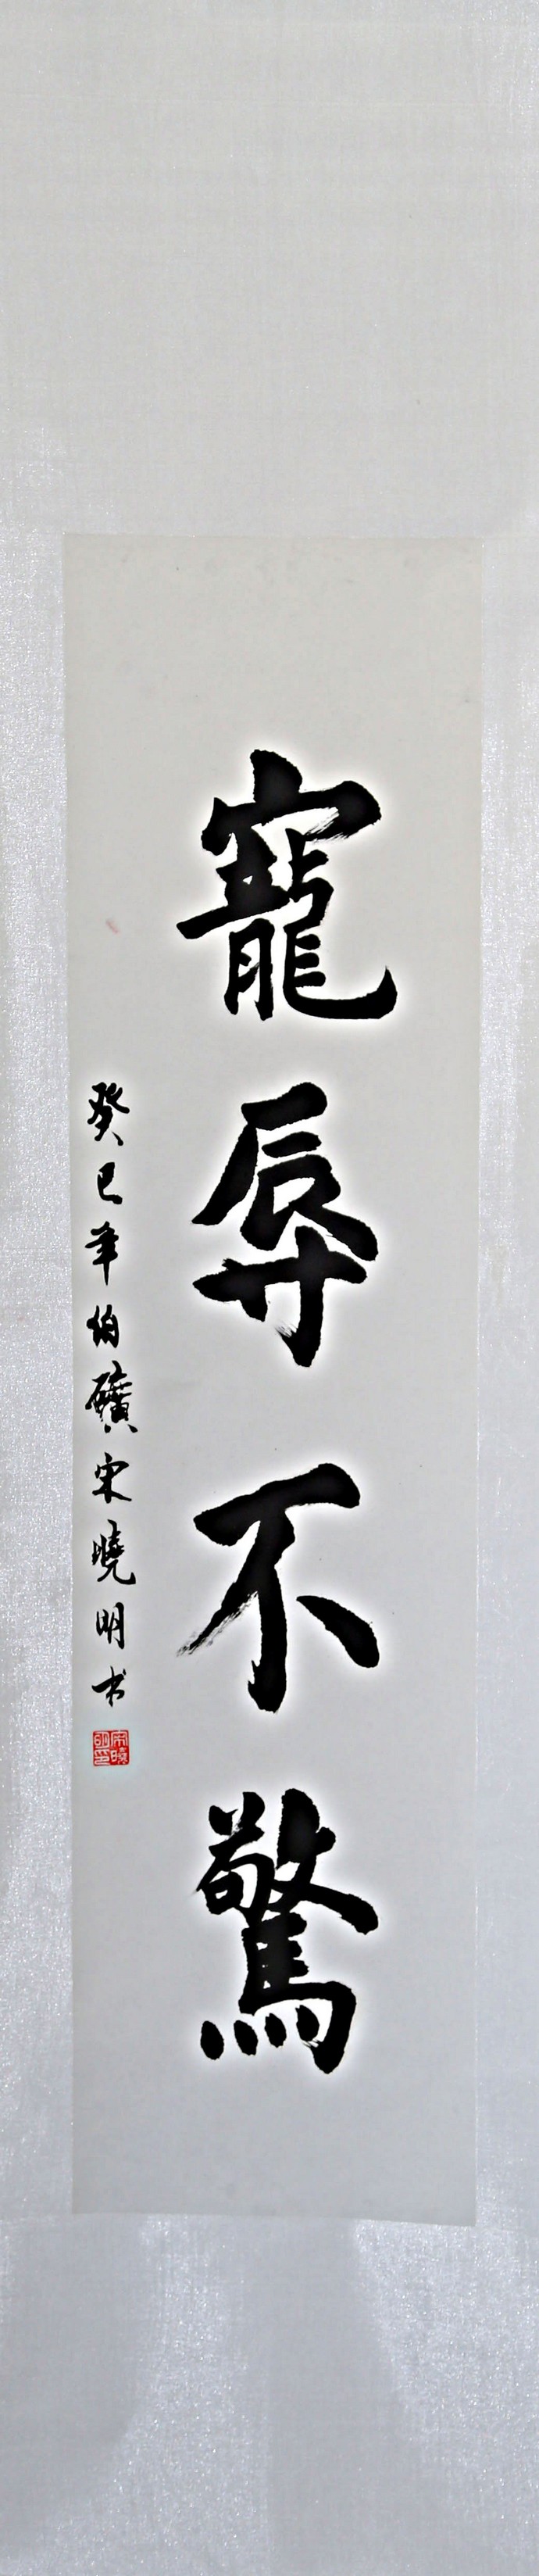 寵辱不驚
癸巳年伯礦宋曉明书
宋曉明印